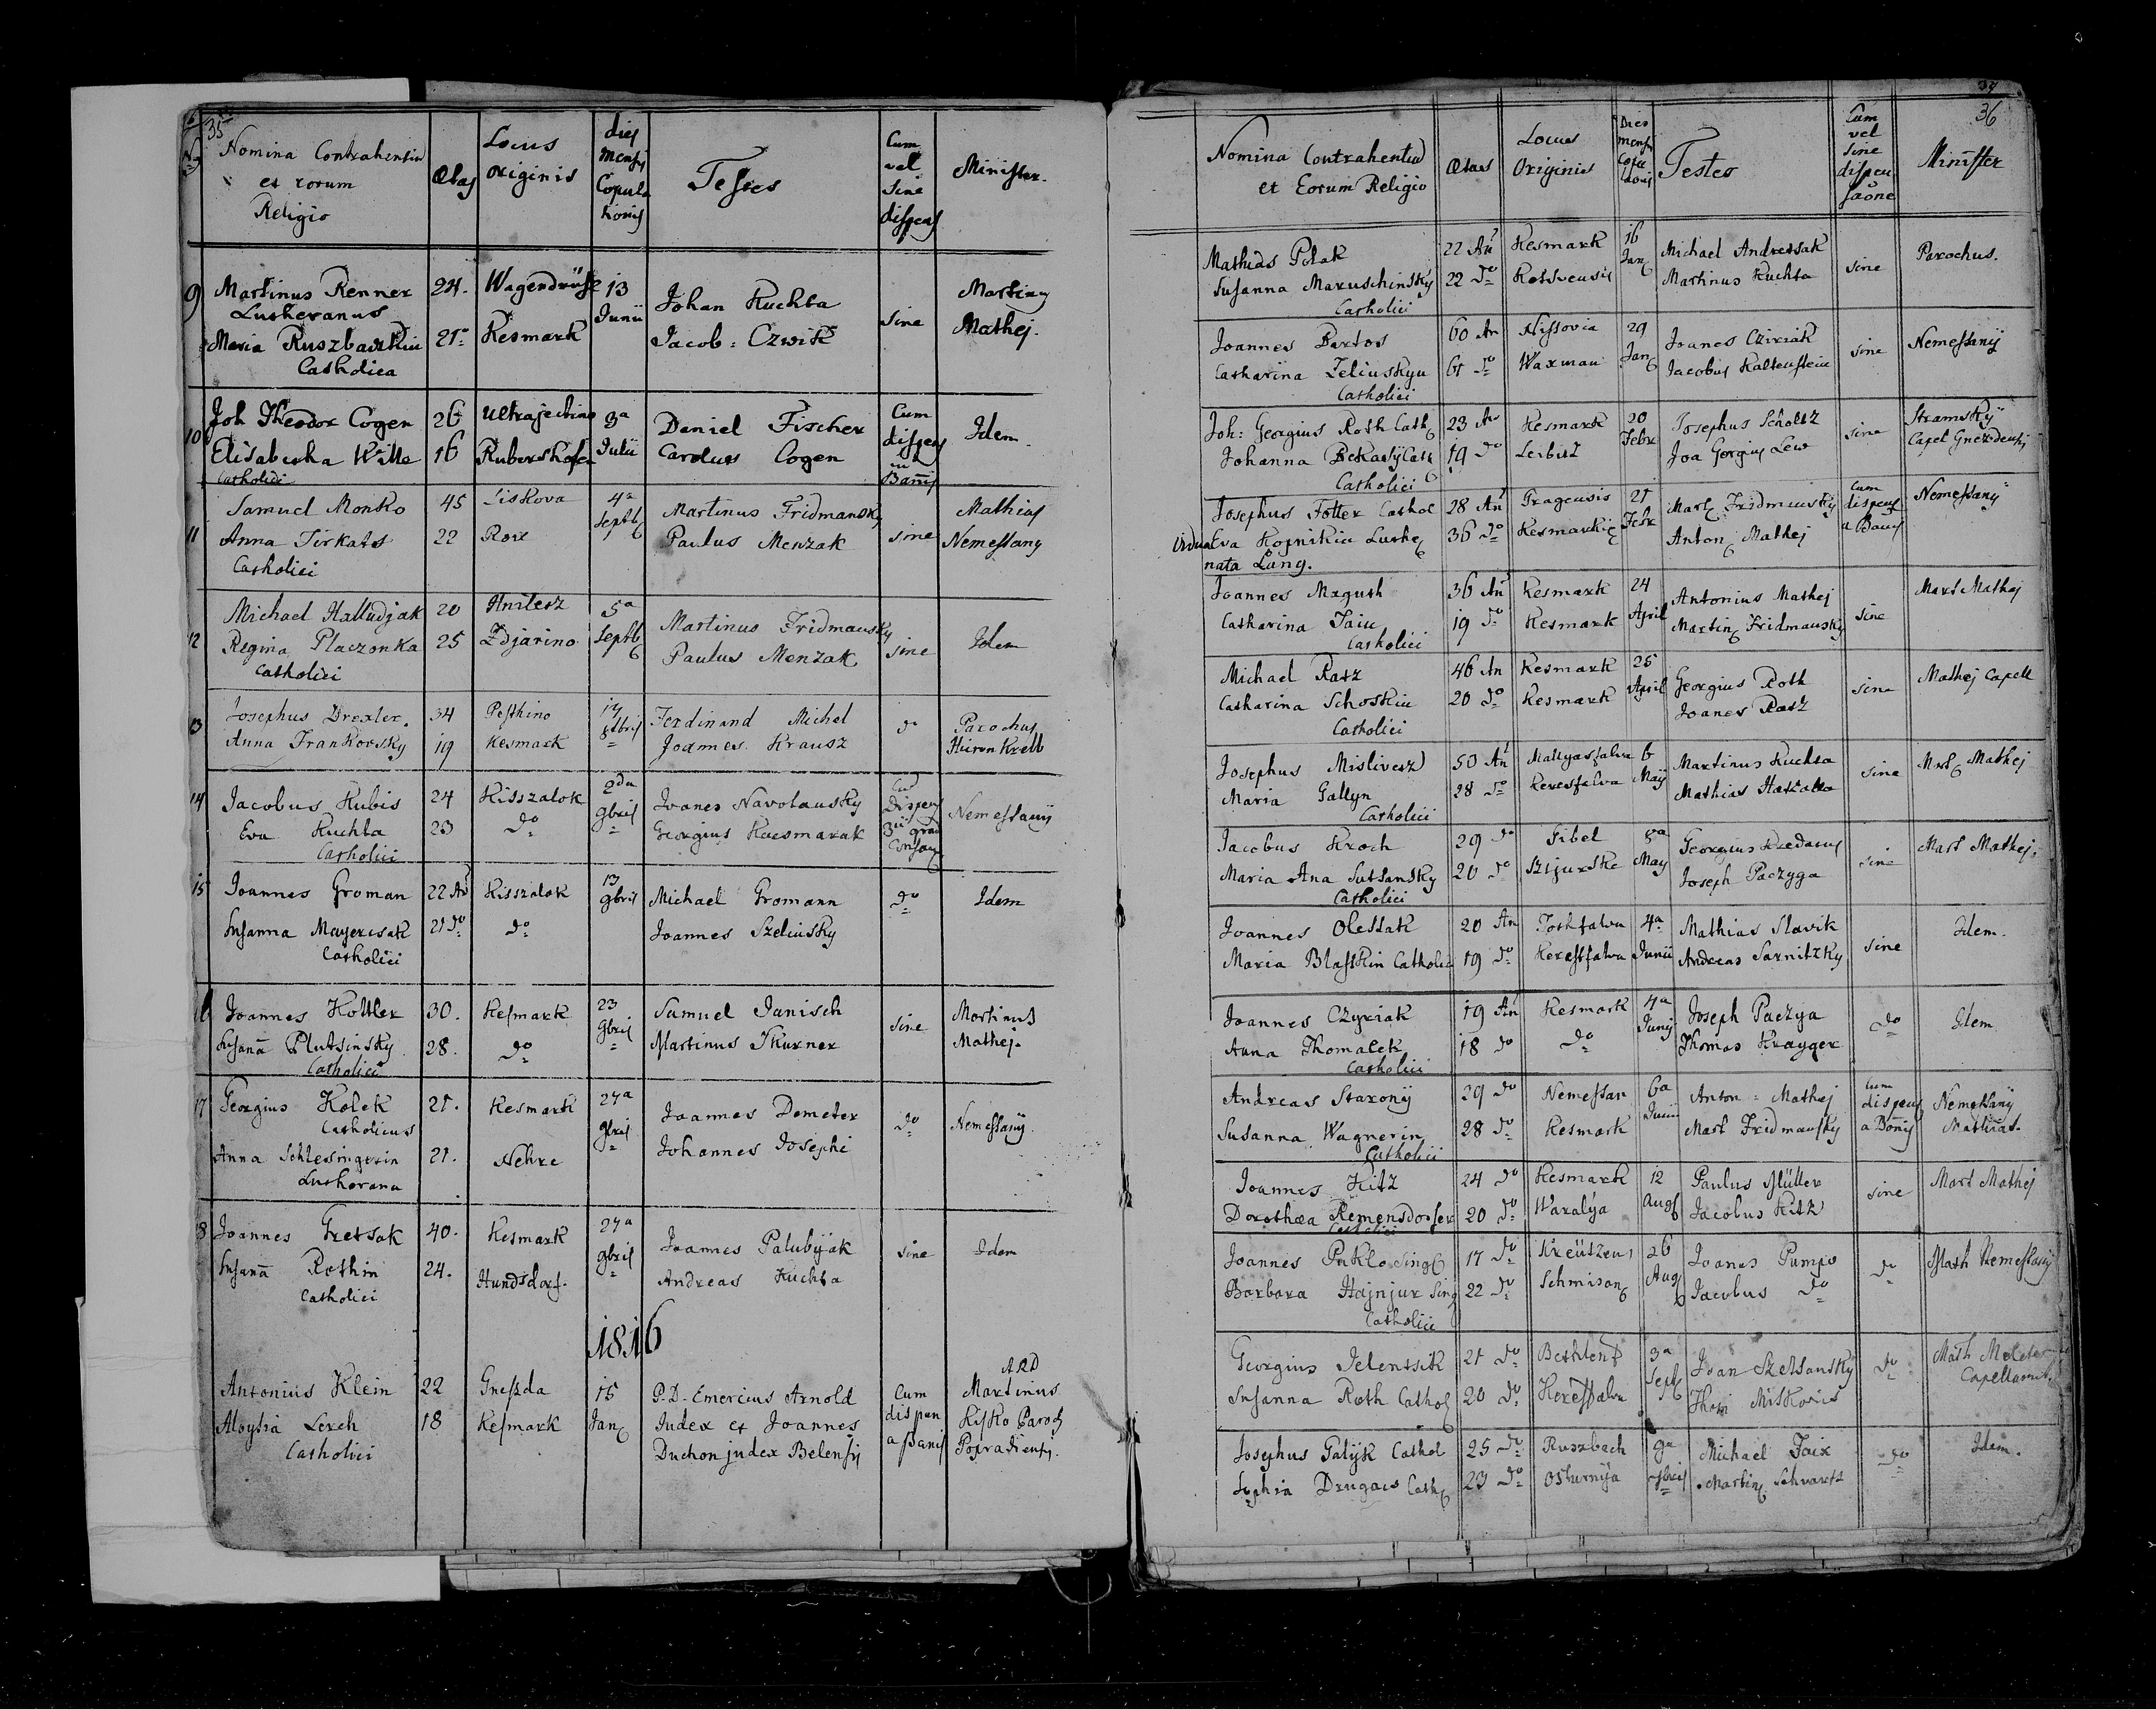 35
No
Nomina Contrahentiu
et eorum
Religio
Ætas
Locus
originis
dies
mensis
Copula
tionis
Testes
Cum
vel
sine
dispens
Minister.
9 Martinus Renner 24. Wagendrüsl 13 Johan Kuchta sine Martiny
Lutheranus Junii Mathej.
Maria Ruszbaczkin 21. Kesmark Jacob: Czwik
Catholica
10 Joh Theodor Cogen 26 Ultrajectino 3a Daniel Fischer Cum Idem.
Elisabetha Wille 16 Rubershofen Julii Carolus Cogen dispens
Catholici in Bañis
11 Samuel Monko 45 Liskova 4a Martinus Fridmansky sine Mathias
Anna Tirkats 22 Rox Septb Paulus Menzak Nemessany
Catholici
12 Michael Halludjak 20 Hnilesz 5a Martinus Fridmansky sine Idem
Regina Placzonka 25 Zdjarino Septb Paulus Menzak
Catholici
13 Josephus Drexler. 34 Pesthino 17 Ferdinand Michel do Parochus
Anna Frankovsky 19 Kesmark 8bris Joannes Krausz Hieron Krell
14 Jacobus Kubis 24 Kisszalok 2da Joanes Navolausky Cu Dispens Nemessany
Eva Kuchta 23 do 9bris Georgius Kaesmarak 3ii grad
Catholici Consang
15 Joannes Groman 22 An Kisszalok 13 Michael Gromann do Idem
9bris
Susanna Mayercsak 21 do do Joannes Szelinsky
Catholici
16 Joannes Kottler 30. Kesmark 23 Samuel Janisch sine Martinus
Susanã Plutsinsky 28. do 9bris Martinus Skurner Mathej.
Catholici
17 Georgius Kolek 21. Kesmark 27a Joannes Demeter do Nemessany
Catholicus 9bris
Anna Schlessingerin 21. Nehre Johannes Josephi
Lutherana
18 Joannes Gretsak 40. Kesmark 27a Joannes Palubyak sine Idem
Susanã Rothin 24. Hundsdorf. 9bris Andreas Kuchta
Catholici
1816
Antonius Klein 22 Gnesda 15 P.D. Emericus Arnold Cum ARD
Martinus
Aloysia Lerch 18 Kesmark Jan Judex et Joannes dispen Kisko Paroch
Catholici Duchon judex Belensis a banis Popradiensis.
37
36
Nomina Contrahentiu
et Eorum Religio
Ætas
Locus
Originis
Dies
mensis
Copu
lationis
Testes
Cum
vel
sine
dispen
saône
Minister
Mathias Polak 22 An Kesmark 16 Michael Andretsak sine Parochus.
Susanna Maruschinsky 22 do Jan Martinus Kuchta
Catholici
Joannes Bartos 60 An Nissovia 29 Joanes Cziriak sine Nemessany
Catharina Zelinskyn 61 do Waxman Jan Jacobus Kaltenstein
Catholici
Joh: Georgius Roth Cath 23 An Kesmark 20 Josephus Scholtz sine Stramsky
Johanna Bekasy Cath 19 do Leibitz Febr Joa Georgius Lew Capel Gnezdensis
Catholici
Josephus Fotter Cathol 28 An Pragensis 21 Mart Fridmansky Cum dispens Nemessany
Vidua Eva Kopnikin Luthe 36 do Kesmarkie Febr Anton Mathej a Banis
nata Lang.
Joannes Magush 36 An Kesmark 24 Antonius Mathej sine Mart Mathej
Catharina Jain 19 do Kesmark April Martin Fridmansky
Catholici
Michael Ratz 46 An Kesmark 25 Georgius Roth sine Mathej Capell
Catharina Schoskin 20 do Kesmark April Joanes Ratz
Catholici
Josephus Mislivesz 50 An Mattyasfalva 6 Martinus Kuchta sine Mart Mathej
Maria Gallyn 28 do Keresfalva Maij Mathias Hatzalla
Catholici
Jacobus Kroch 29 do Tibel 8a Georgius sine Mart Mathej.
Maria Ana Sutsansky 20 do Sztjurske May Joseph Paczyga
Catholici
Joannes Olessak 20 An Toshfalva 4a Mathias Slavik sine Idem.
Maria Blaskin Catholica 19 do Keresfalva Junii Andreas Sarnitzky
Joannes Czyriak 19 An Kesmark 4a Joseph Paczya do Idem
Anna Thomalek 18 do do Junij Thomas Krayger
Catholici
Andreas Starony 29 do Nemessan 6a Anton = Mathej Cum dispens Nemessany
Susanna Wagnerin 28 do Kesmark Junii Mart Fridmansky a Banis Mathias.
Catholici
Joannes Kitz 24 do Kesmark 12 Paulus Müller sine Mart Mathej
Dorothea Remensdorfer 20 do Waralya Aug Jacobus Kitz
Catholici
Joannes Puklo Singl 17 do Kreützens 26 Joanes Pumpo do Math Nemessany
Barbara Hajnjur Sing 22 do Schmison Aug Jacobus do
Catholici
Georgius Jelentsik 21 do Bethlenf 3a Joan Szetsansky do Math Meleter
Susanna Roth Cathol 20 do Keresfalva Sept Thom Miskovis Capellanus
Josephus Galyk Cathol 25 do Ruszbach 9a Michael Jaix do Idem.
Sophia Drugacs Cath 23 do Osturnya 7bris Martin Schvartz